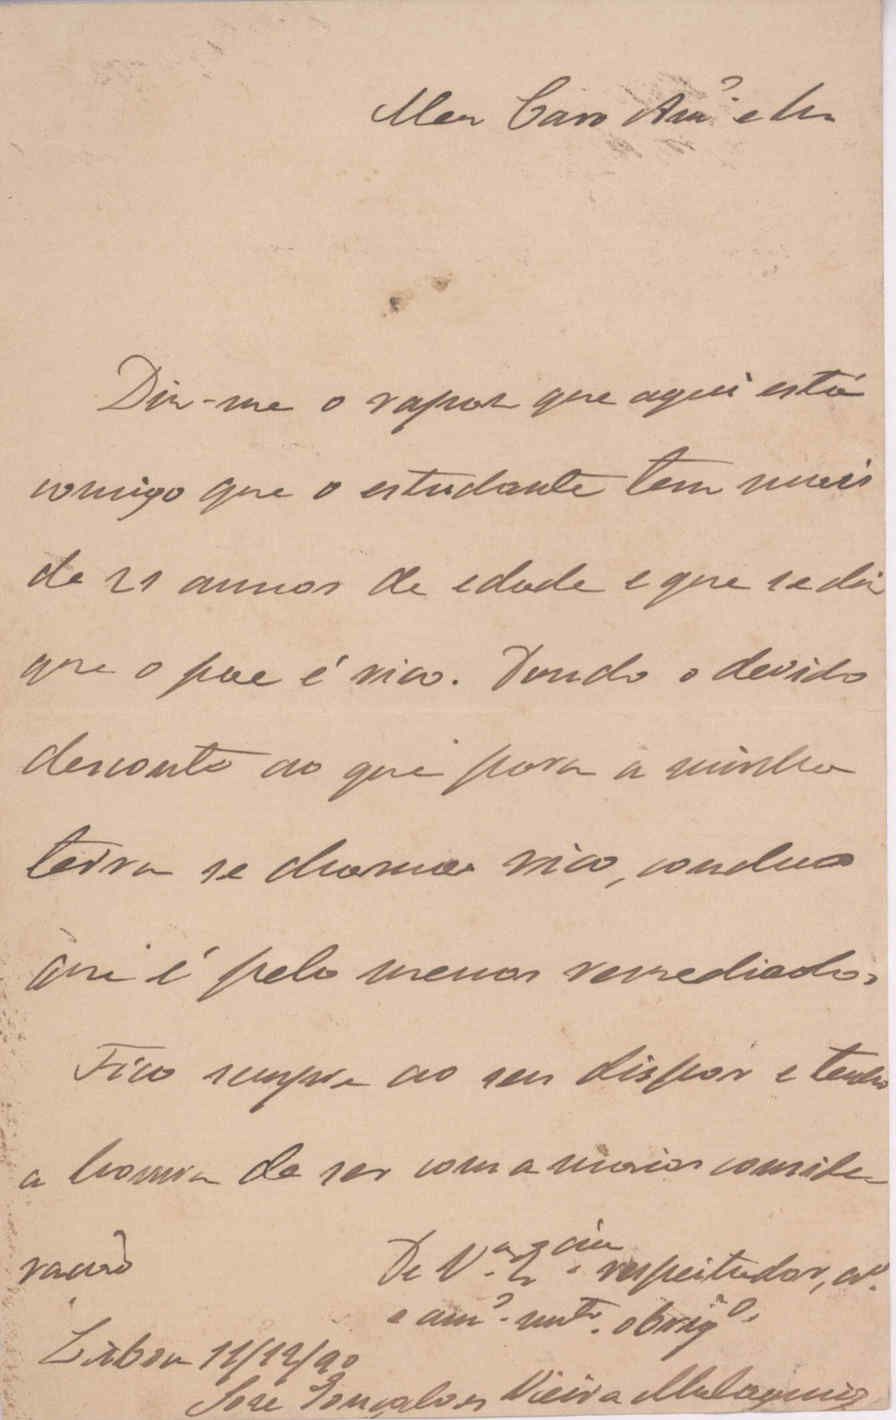 Meu Caro Am.º e Sr.
Diz-me o rapaz que aqui está
comigo que o estudante tem mais
de 21 annos de edade e que se diz
que o pae é rico. Dando o devido
desconto ao que para a minha
terra se chama rico, concluo
que é pelo menos remediado.
Fico sempre ao seu dispôr e tenho
a honra de ser com a maior conside-
ração
De V.ª Ex.cia respeitador, cr.º
e am.º mt.º obrig.º
Lisboa 11/12/90
José Gonçalves Vieira